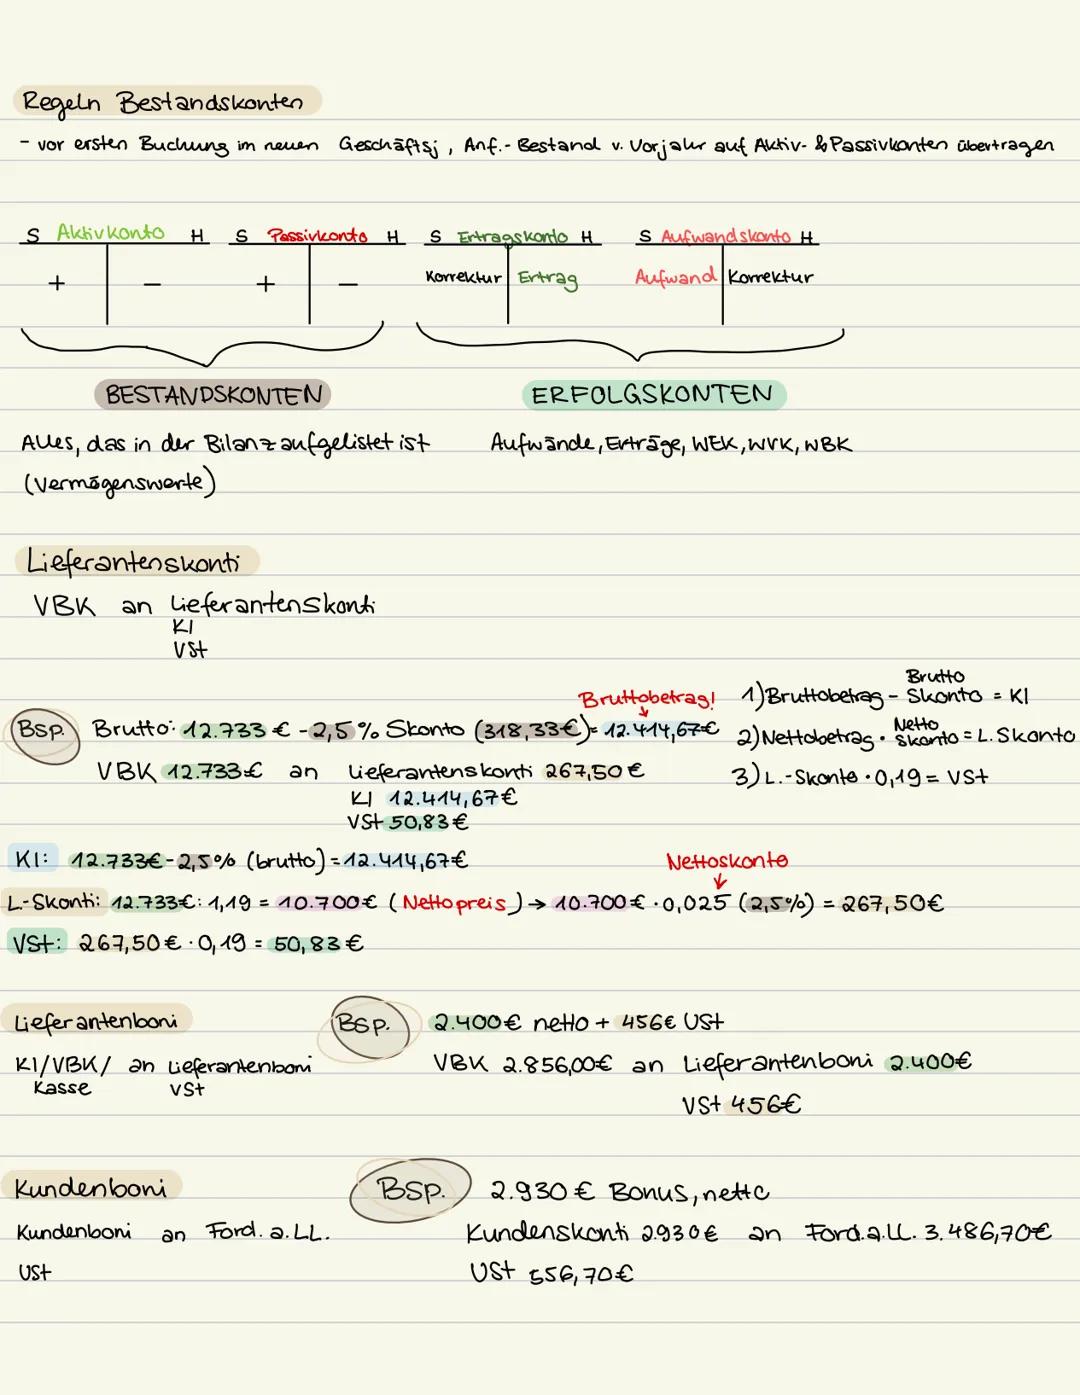 Regeln Bestandskonten
- vor ersten Buchung im neuen Geschäftsj, Anf.- Bestand v. Vorjahr auf Aktiv- & Passivkonten übertragen
S Aktivkonto H S Passivkonto H S Ertragskonto H S Aufwandskonto H
+ − + − Korrektur Ertrag Aufwand Korrektur
BESTANDSKONTEN ERFOLGSKONTEN
Alles, das in der Bilanz aufgelistet ist Aufwände, Erträge, WEK, WVK, WBK
(Vermögenswerte)
Lieferantenskonti
VBK an Lieferantenskonti
KI
VSt
Bruttobetrag! 1) Bruttobetrag - Brutto Skonto = KI
Bsp. Brutto: 12.733 € - 2,5 % Skonto (318,33€) = 12.414,67€ 2) Nettobetrag · Netto Skonto = L. Skonto
VBK 12.733€ an Lieferantenskonti 267,50 € 3) L.-Skonto · 0,19 = VSt
KI 12.414,67€
VSt 50,83 €
KI: 12.733€ - 2,5% (brutto) = 12.414,67€ Nettoskonto
L-Skonti: 12.733€ : 1,19 = 10.700€ (Nettopreis) → 10.700 € · 0,025 (2,5%) = 267,50€
VSt: 267,50 € · 0,19 = 50,83 €
Lieferantenboni Bsp. 2.400€ netto + 456€ USt
KI/VBK/ an Lieferantenboni VBK 2.856,00€ an Lieferantenboni 2.400€
Kasse VSt VSt 456€
Kundenboni Bsp. 2.930 € Bonus, netto
Kundenboni an Ford. a. LL. Kundenskonti 2.930€ an Ford.a.LL. 3.486,70€
USt USt 556,70€